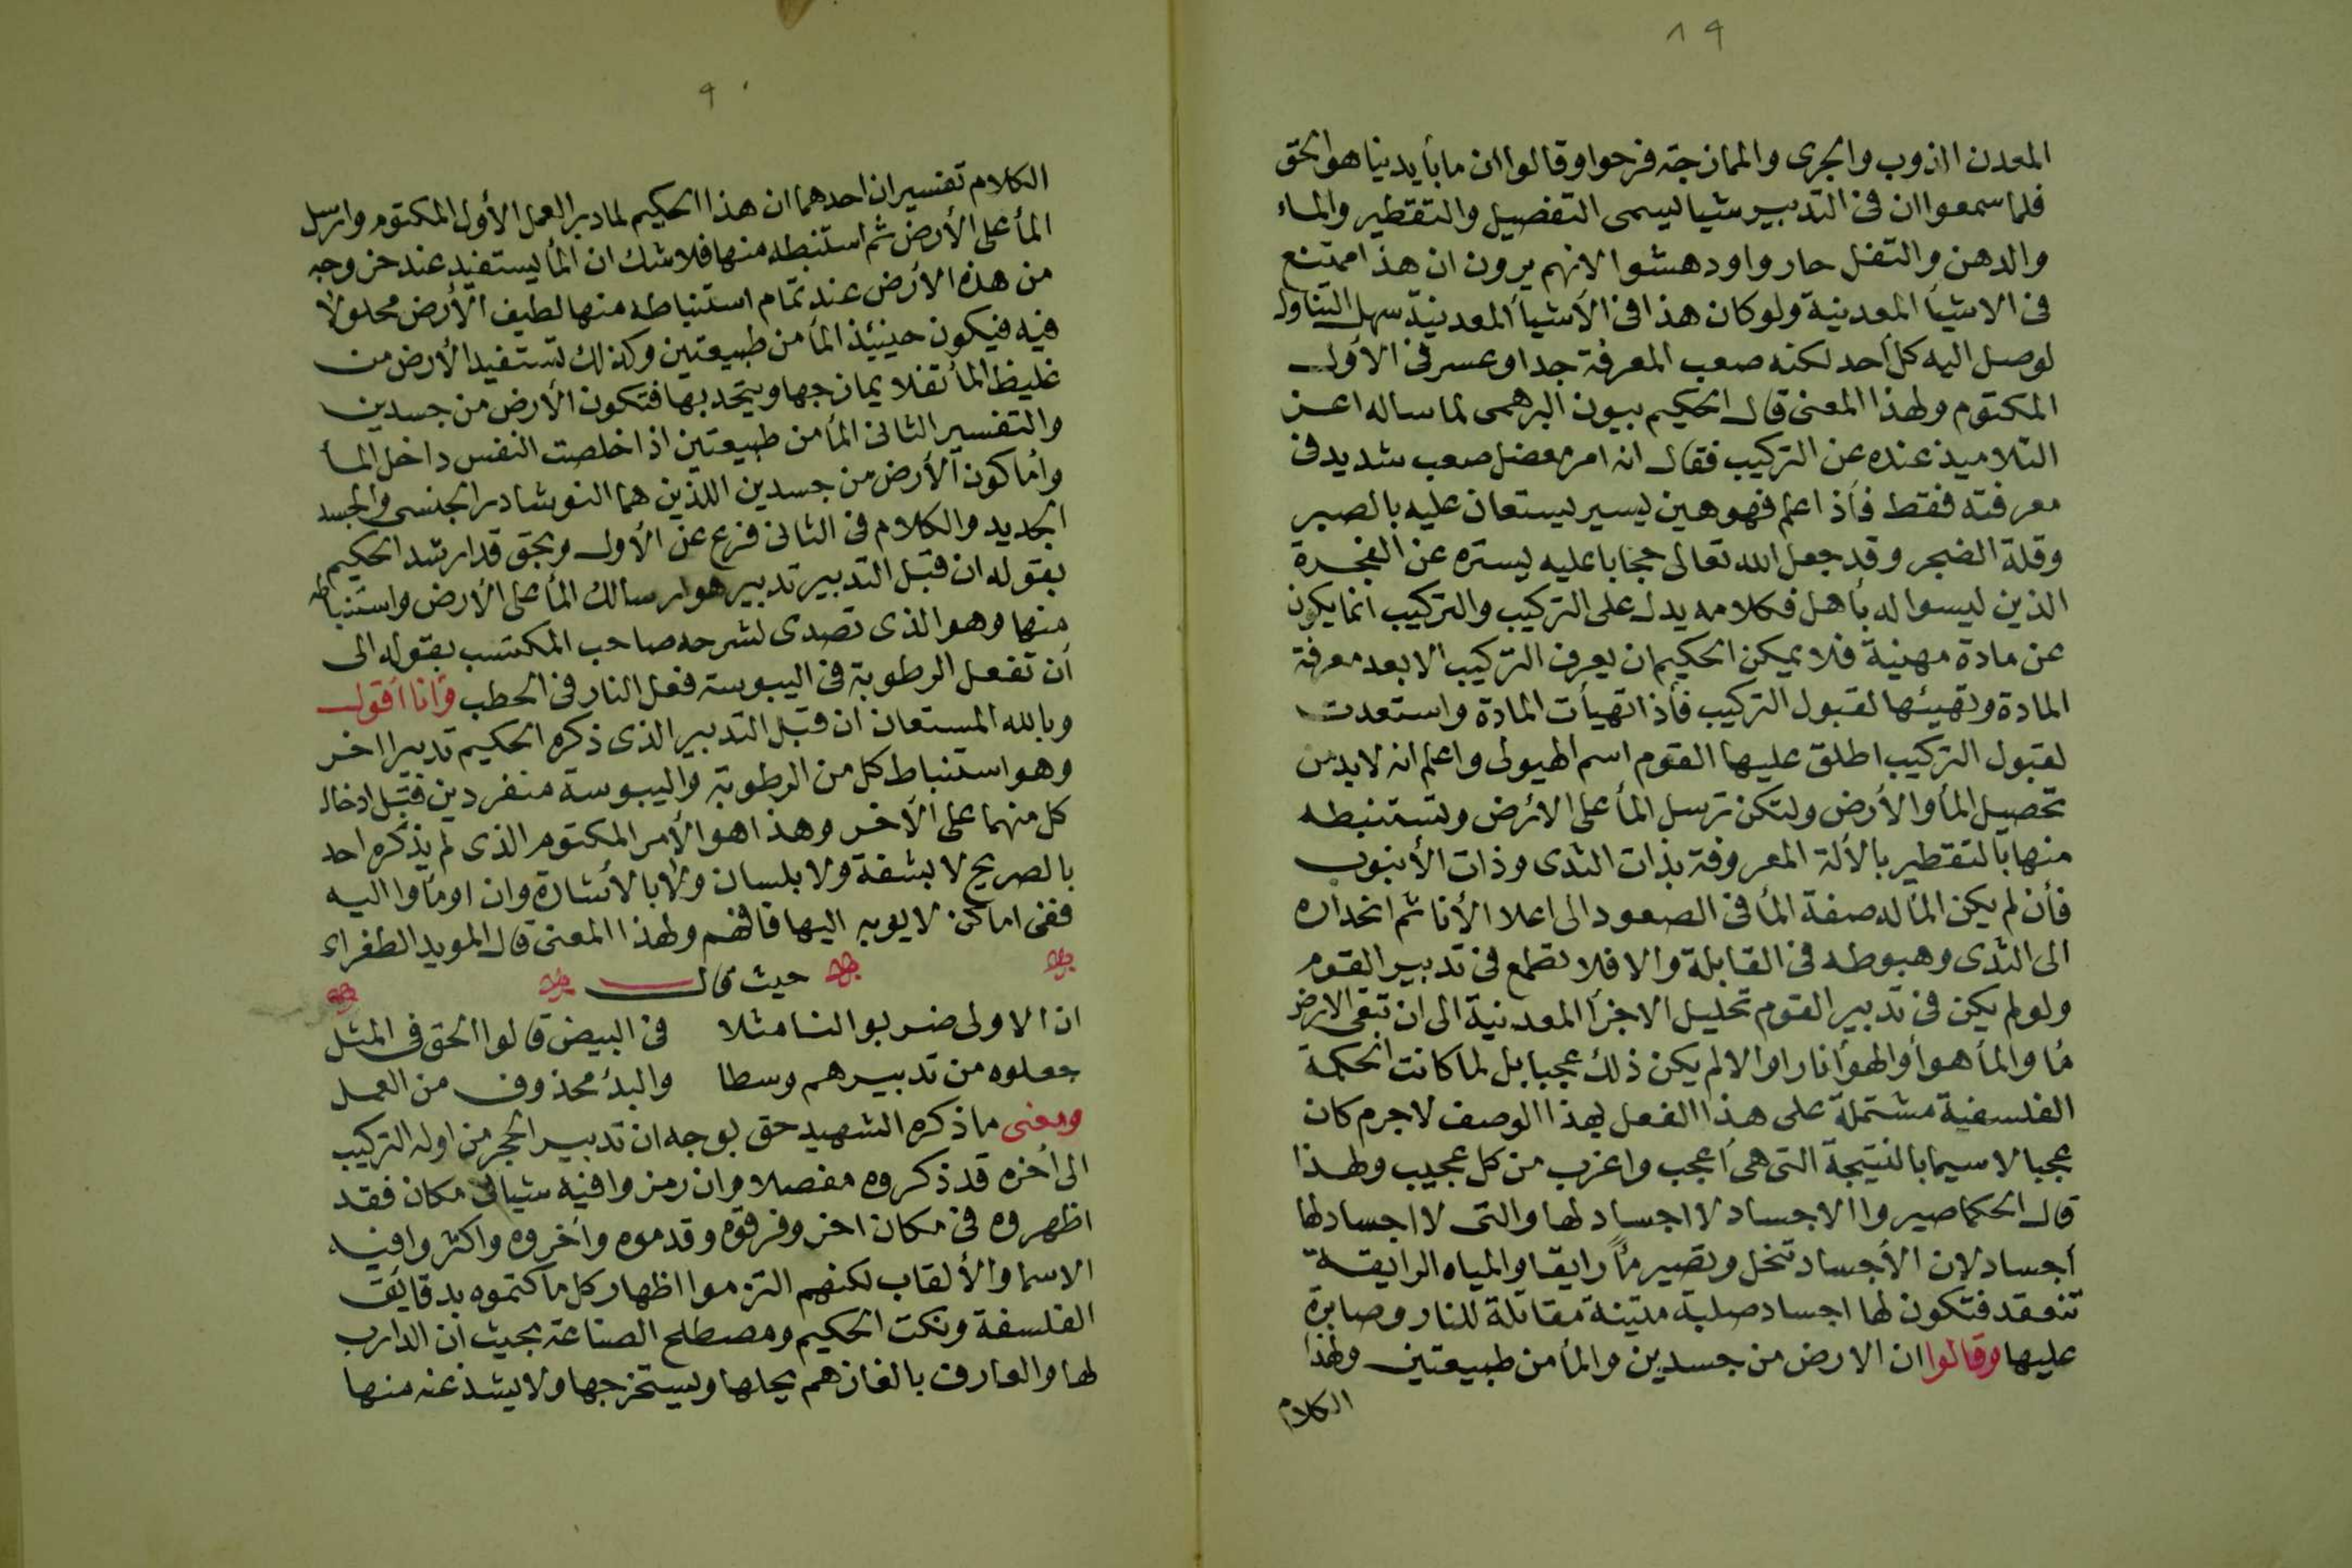 ٨٩
المعدن الذوب والجرى والممازجة فرحوا وقالوا ان ما بأيدينا هو الحق
فلما سمعوا ان فى التدبير شيا ليسمى التفصيل والتقطير والماء
والدهن والتفل حاروا ودهشوا لانهم يرون ان هذا ممتنع
فى الاشيأ المعدنية ولو كان هذا فى الأشيأ المعدنية سهل التناول
لوصل اليه كل أحد لكنه صعب المعرفة جدا وعسر فى الأول
المكتوم ولهذا المعنى قال الحكيم بيون البرهمى لما ساله اعز
التلاميذ عنده عن التركيب فقال انه امر معضل صعب شديد فى
معرفته فقط فأذا علم فهو هين يسير يستعان عليه بالصبر
وقلة الضجر وقد جعل الله تعالى حجابا عليه يستره عن الفجرة
الذين ليسوا له بأهل فكلامه يدل على التركيب والتركيب انما يكون
عن مادة مهنية فلا يمكن الحكيم ان يعرف التركيب الا بعد معرفة
المادة وتهيئها لقبول التركيب فأذا تهيأت المادة واستعدت
لقبول التركيب اطلق عليها القوم اسم الهيولى واعلم انه لا بد من
تحصيل المأ والأرض ولتكن ترسل المأ على الأرض وتستنبطه
منها بالتقطير بالألة المعروفة بذات الثدى وذات الأنبوب
فأن لم يكن المأ له صفة المأ فى الصعود الى اعلا الأنا ثم انحداره
الى الثدى وهبوطه فى القابلة والا فلا تطمع فى تدبير القوم
ولو لم يكن فى تدبير القوم تحليل الاجزأ المعدنية الى ان تبقى الارض
مأ والمأ هوأ والهوأ نارا والا لم يكن ذلك عجبا بل لما كانت الحكمة
الفلسفية مشتملة على هذا الفعل بهذا الوصف لا جرم كان
عجبا لا سيما بالنتيجة التى هى أعجب واغرب من كل عجيب ولهذا
قال الحكما صيروا الاجساد لا اجساد لها والتى لا اجساد لها
أجساد لان الأجساد تنحل وتصير مأً رايقا والمياه الرايقة
تنعقد فتكون لها اجساد صلبة متينة مقاتلة للنار وصابرة
عليها وقالوا ان الارض من جسدين والمأ من طبيعتين ولهذا
الكلام
٩٠
الكلام تفسيران احدهما ان هذا الحكيم لما دبر العمل الأول المكتوم وارسل
المأ على الأرض ثم استنبطه منها فلا شك ان المأ يستفيد عند خروجه
من هذه الأرض عند تمام استنباطه منها لطيف الأرض محلولا
فيه فيكون حينئذ المأ من طبيعتين وكذلك تستفيد الأرض من
غليظ المأ تفلا يمازجها ويتحد بها فتكون الأرض من جسدين
والتفسير الثانى المأ من طبيعتين اذا خلصت النفس داخل المأ
وأما كون الأرض من جسدين اللذين هما النوشادر الجنسى والجسد
الجديد والكلام فى الثانى فرع عن الأول وبحق قد ارشد الحكيم
بقوله ان قبل التدبير تدبير هو ارسالك المأ على الأرض واستنباطه
منها وهو الذى تصدى لشرحه صاحب المكتسب بقوله الى
أن تفعل الرطوبة فى اليبوسة فعل النار فى الحطب وأنا أقول
وبالله المستعان ان قبل التدبير الذى ذكره الحكيم تدبيرا اخر
وهو استنباط كل من الرطوبة واليبوسة منفردين قبل ادخال
كل منهما على الآخر وهذا هو الأمر المكتوم الذى لم يذكره احد
بالصريح لا بشفة ولا بلسان ولا بالأشارة وان اوماوا اليه
ففى اماكن لا يوبه اليها فافهم ولهذا المعنى قال المويد الطغراء
حيث قال
ان الاولى ضربوا لنا مثلا    فى البيض قالوا الحق فى المثل
جعلوه من تدبيرهم وسطا    والبدأ محذوف من العمل
ومعنى ما ذكره الشهيد حق بوجه ان تدبير الحجر من اوله التركيب
الى أخره قد ذكروه مفصلا وان رمزوا فيه شيا فى مكان فقد
اظهروه فى مكان اخر وفرقوه وقدموه وأخروه واكثروا فيه
الاسما والألقاب لكنهم التزموا اظهار كل ما كتموه بدقايق
الفلسفة ونكت الحكيم ومصطلح الصناعة بحيث أن الدارب
لها والعارف بالغازهم يحلها ويستخرجها ولا يشذ عنه منها